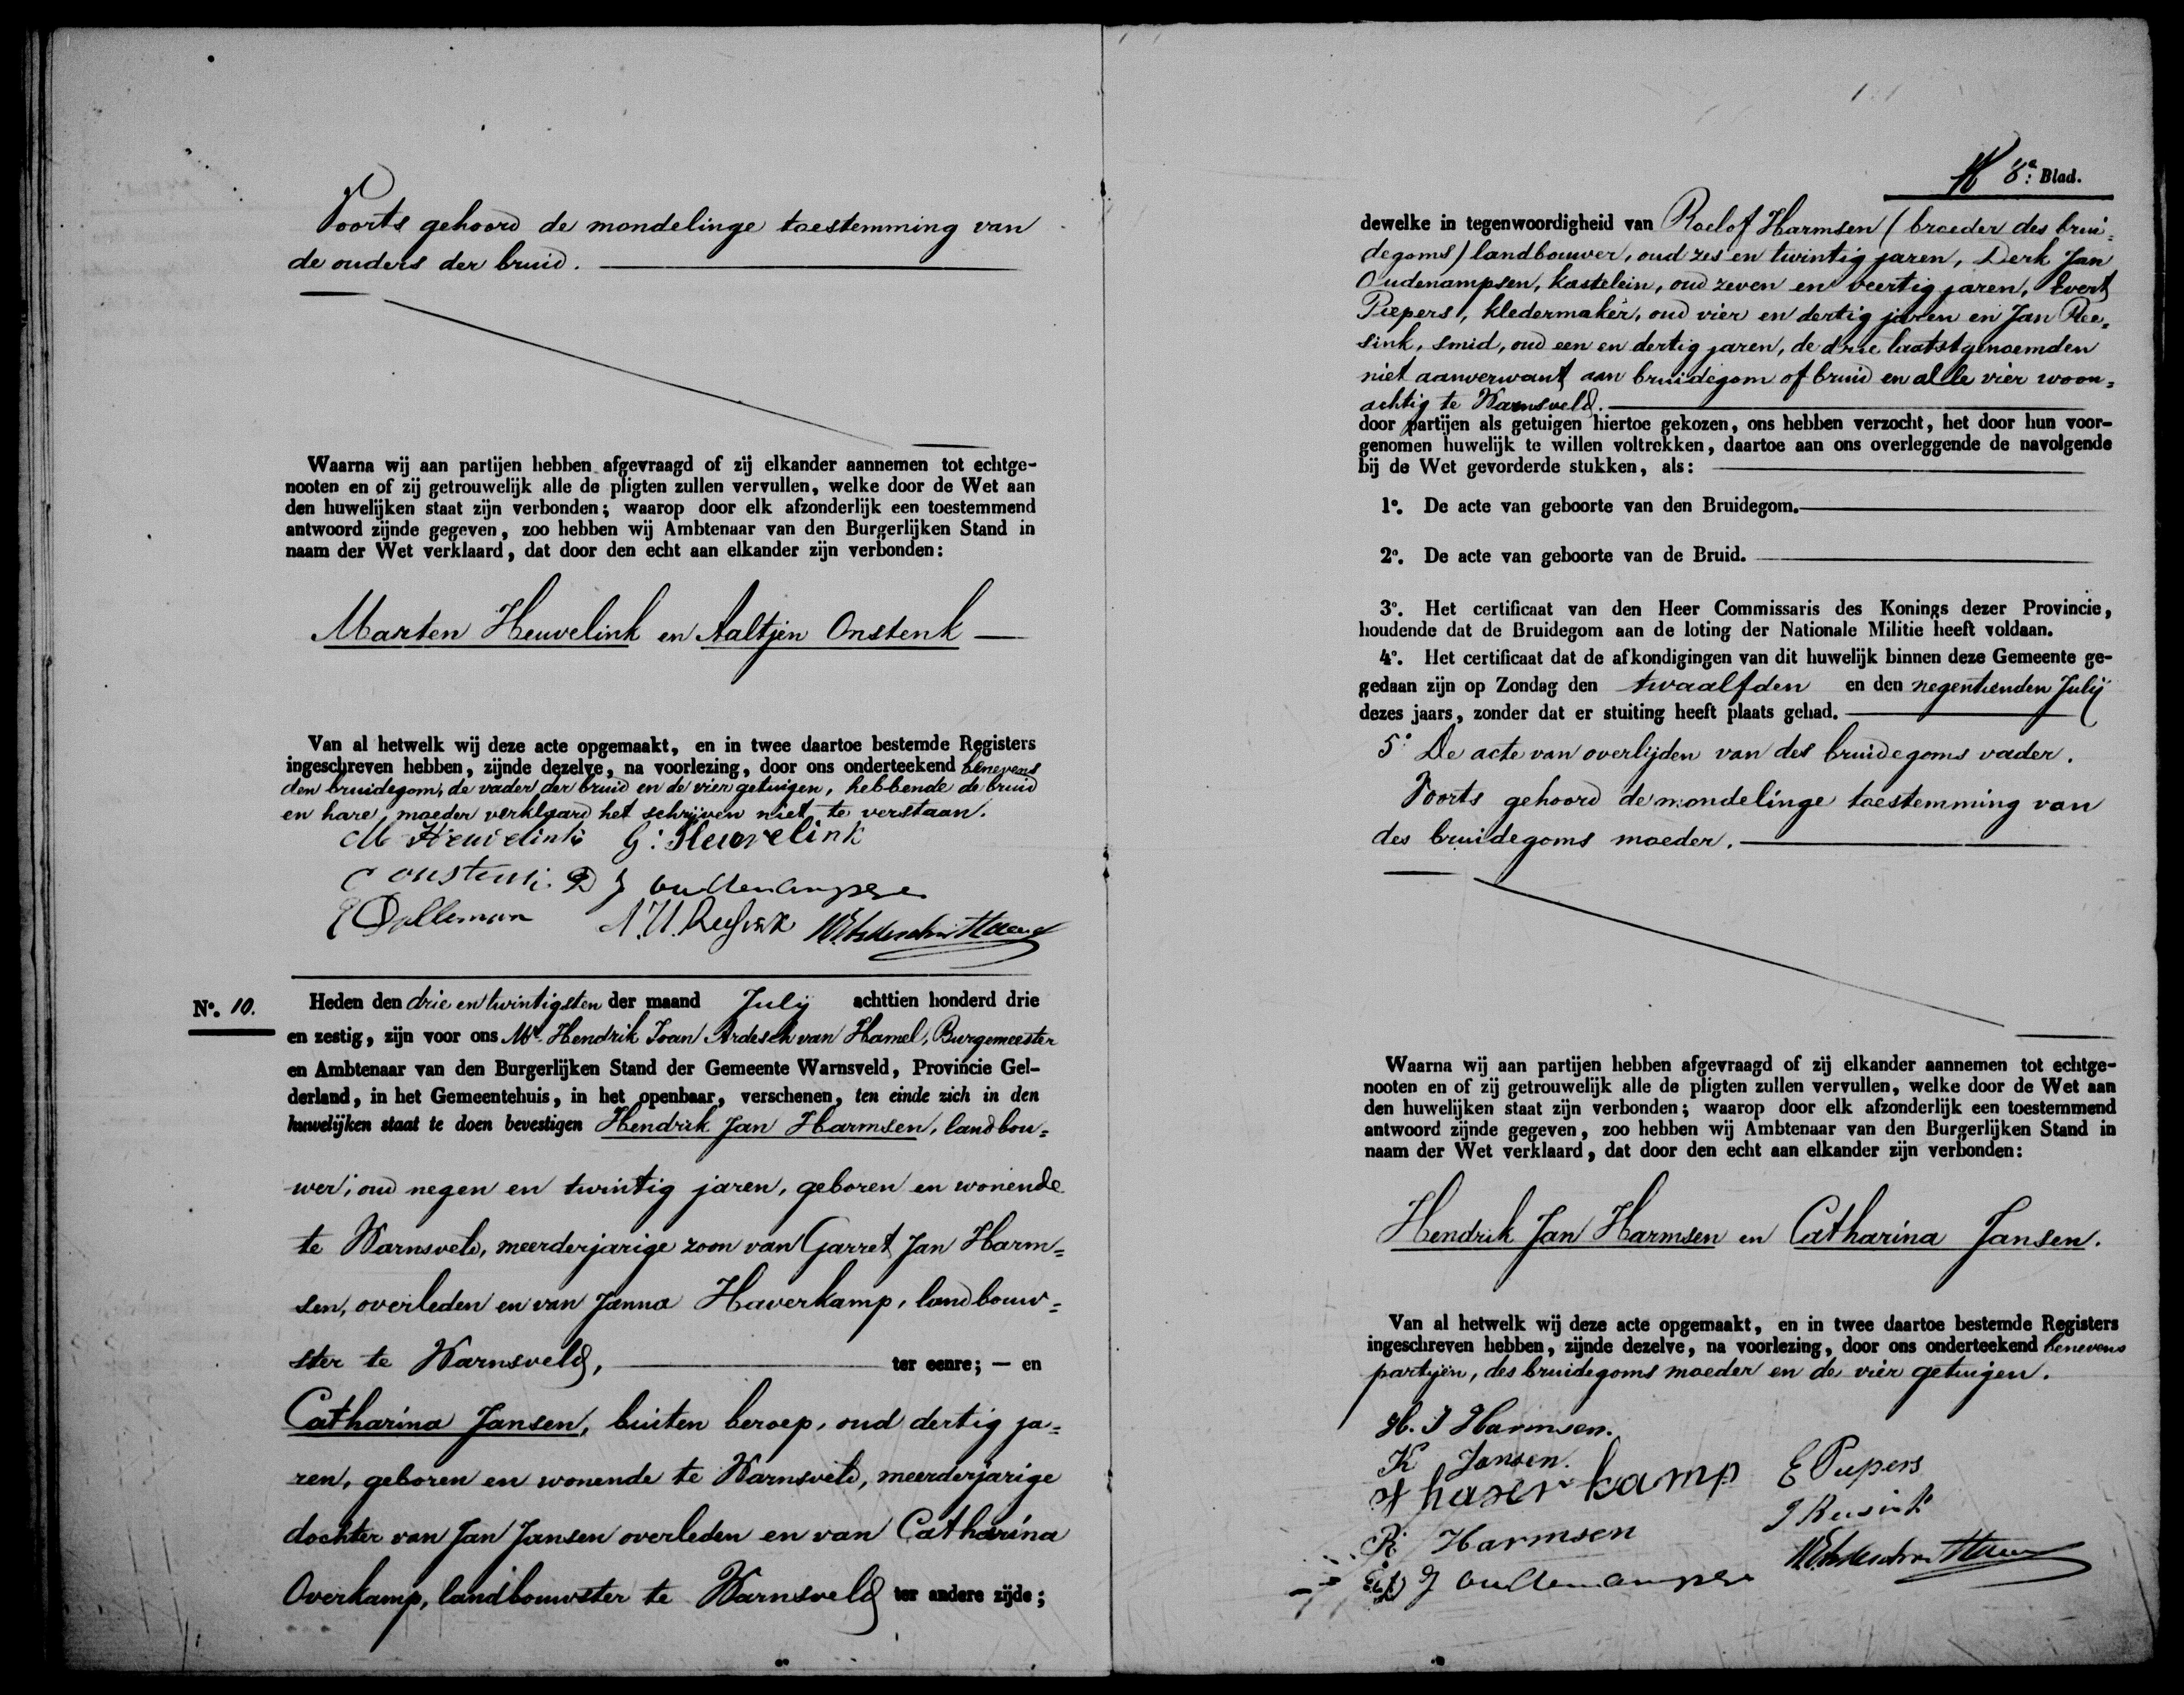 Voorts gehoord de mondelinge toestemming van
de ouders der bruid.
Waarna wij aan partijen hebben afgevraagd of zij elkander aannemen tot echtge-
nooten en of zij getrouwelijk alle de pligten zullen vervullen, welke door de Wet aan
den huwelijken staat zijn verbonden; waarop door elk afzonderlijk een toestemmend
antwoord zijnde gegeven, zoo hebben wij Ambtenaar van den Burgerlijken Stand in
naam der Wet verklaard, dat door den echt aan elkander zijn verbonden:
Marten Heuvelink en Aaltjen Onstenk
Van al hetwelk wij deze acte opgemaakt, en in twee daartoe bestemde Registers
ingeschreven hebben, zijnde dezelve, na voorlezing, door ons onderteekend benevens
den bruidegom, de vader der bruid en de vier getuigen, hebbende de bruid
en hare moeder verklaard het schrijven niet te verstaan.
M Heuvelink G: Heuvelink
D J oudenampsen
No. 10. Heden den drie en twintigsten der maand July achttien honderd drie
en zestig, zijn voor ons Mr. Hendrik Joan Ardesch van Hamel, Burgemeester
en Ambtenaar van den Burgerlijken Stand der Gemeente Warnsveld, Provincie Gel-
derland, in het Gemeentehuis, in het openbaar, verschenen, ten einde zich in den
huwelijken staat te doen bevestigen Hendrik Jan Harmsen, landbou=
wer, oud negen en twintig jaren, geboren en wonende
te Warnsveld, meerderjarige zoon van Garret Jan Harm=
sen, overleden en van Janna Haverkamp, landbouw=
ster te Warnsveld, ter eenre; — en
Catharina Jansen, buiten beroep, oud dertig ja=
ren, geboren en wonende te Warnsveld, meerderjarige
dochter van Jan Jansen overleden en van Catharina
Overkamp, landbouwster te Warnsveld ter andere zijde;
8e. Blad.
dewelke in tegenwoordigheid van Roelof Harmsen (broeder des brui=
degoms) landbouwer, oud zes en twintig jaren, Derk Jan
Oudenampsen, kastelein, oud zeven en veertig jaren, Evert
Piepers, kledermaker, oud vier en dertig jaren en Jan Ree=
sink, smid, oud een en dertig jaren, de drie laatstgenoemden
niet aanverwant aan bruidegom of bruid en alle vier woon=
achtig te Warnsveld.
door partijen als getuigen hiertoe gekozen, ons hebben verzocht, het door hun voor-
genomen huwelijk te willen voltrekken, daartoe aan ons overleggende de navolgende
bij de Wet gevorderde stukken, als:
1o. De acte van geboorte van den Bruidegom.
2o. De acte van geboorte van de Bruid.
3o. Het certificaat van den Heer Commissaris des Konings dezer Provincie,
houdende dat de Bruidegom aan de loting der Nationale Militie heeft voldaan.
4o. Het certificaat dat de afkondigingen van dit huwelijk binnen deze Gemeente ge-
gedaan zijn op Zondag den twaalfden en den negentienden July
dezes jaars, zonder dat er stuiting heeft plaats gehad.
5o De acte van overlijden van des bruidegoms vader.
Voorts gehoord de mondelinge toestemming van
des bruidegoms moeder.
Waarna wij aan partijen hebben afgevraagd of zij elkander aannemen tot echtge-
nooten en of zij getrouwelijk alle de pligten zullen vervullen, welke door de Wet aan
den huwelijken staat zijn verbonden; waarop door elk afzonderlijk een toestemmend
antwoord zijnde gegeven, zoo hebben wij Ambtenaar van den Burgerlijken Stand in
naam der Wet verklaard, dat door den echt aan elkander zijn verbonden:
Hendrik Jan Harmsen en Catharina Jansen.
Van al hetwelk wij deze acte opgemaakt, en in twee daartoe bestemde Registers
ingeschreven hebben, zijnde dezelve, na voorlezing, door ons onderteekend benevens
partyen, des bruidegoms moeder en de vier getuigen.
H. J Harmsen.
K Jansen. E Piepers
haverkamp
J Reesink
R Harmsen
D J oudenampsen